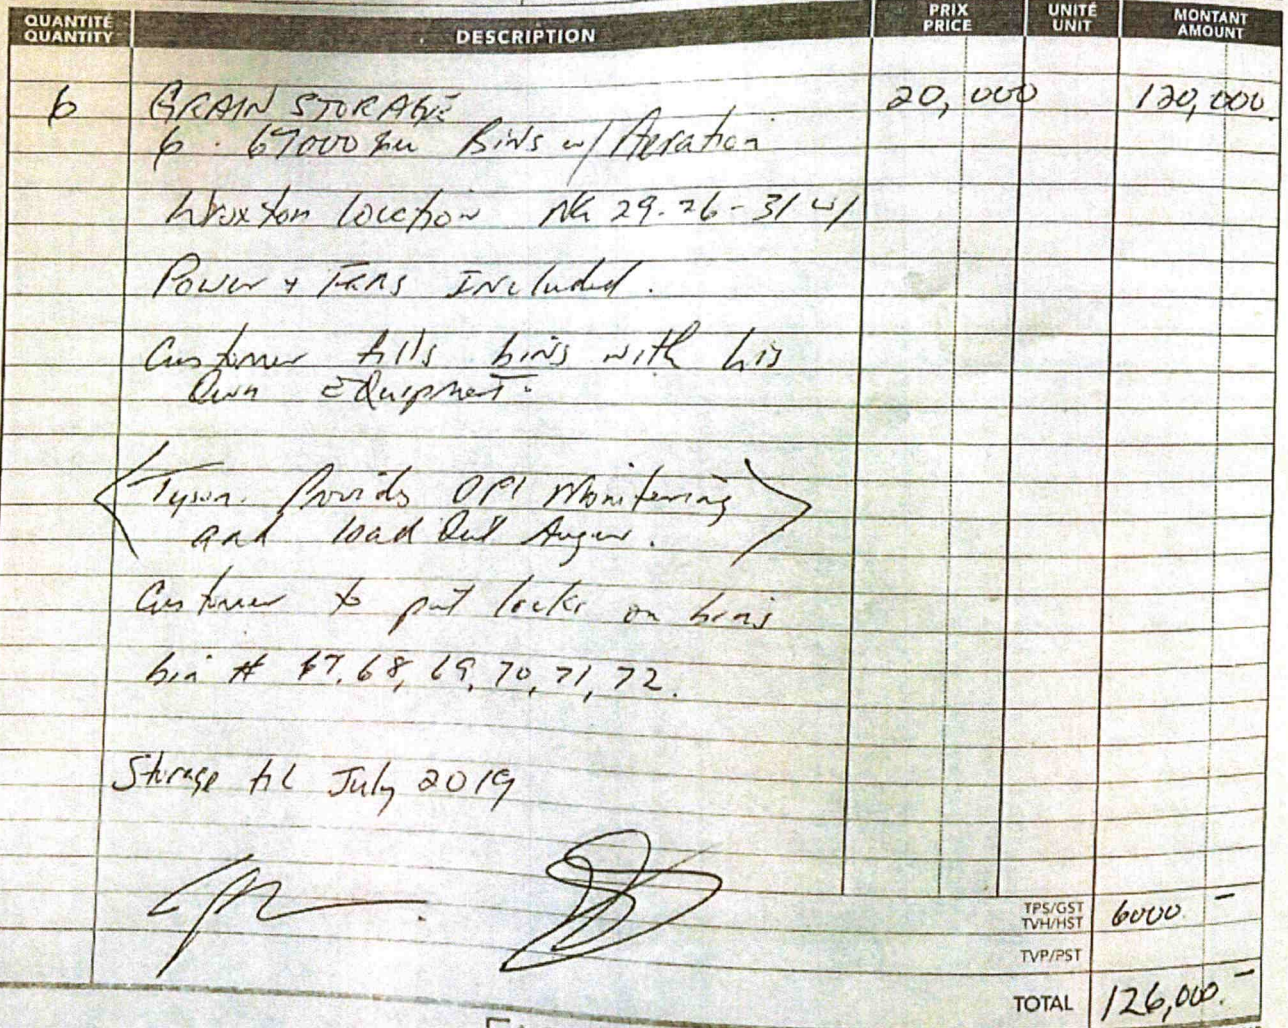 QUANTITÉ QUANTITY DESCRIPTION PRIX PRICE UNITÉ UNIT MONTANT AMOUNT
6 GRAIN STORAGE 20,000 120,000
6 . 67000 Bu Bins w/ Aeration
Wroxton location NE 29-26-31 w1
Power + FANS Included.
Customer fills bins with his
Own Equipment.
Tyson Provids OPI Monitering
and load Out Auger.
Customer to put locks on bins
bin # 67, 68, 69, 70, 71, 72.
Storage til July 2019
TPS/GST TVH/HST 6000.-
TVP/PST
TOTAL 126,000.-